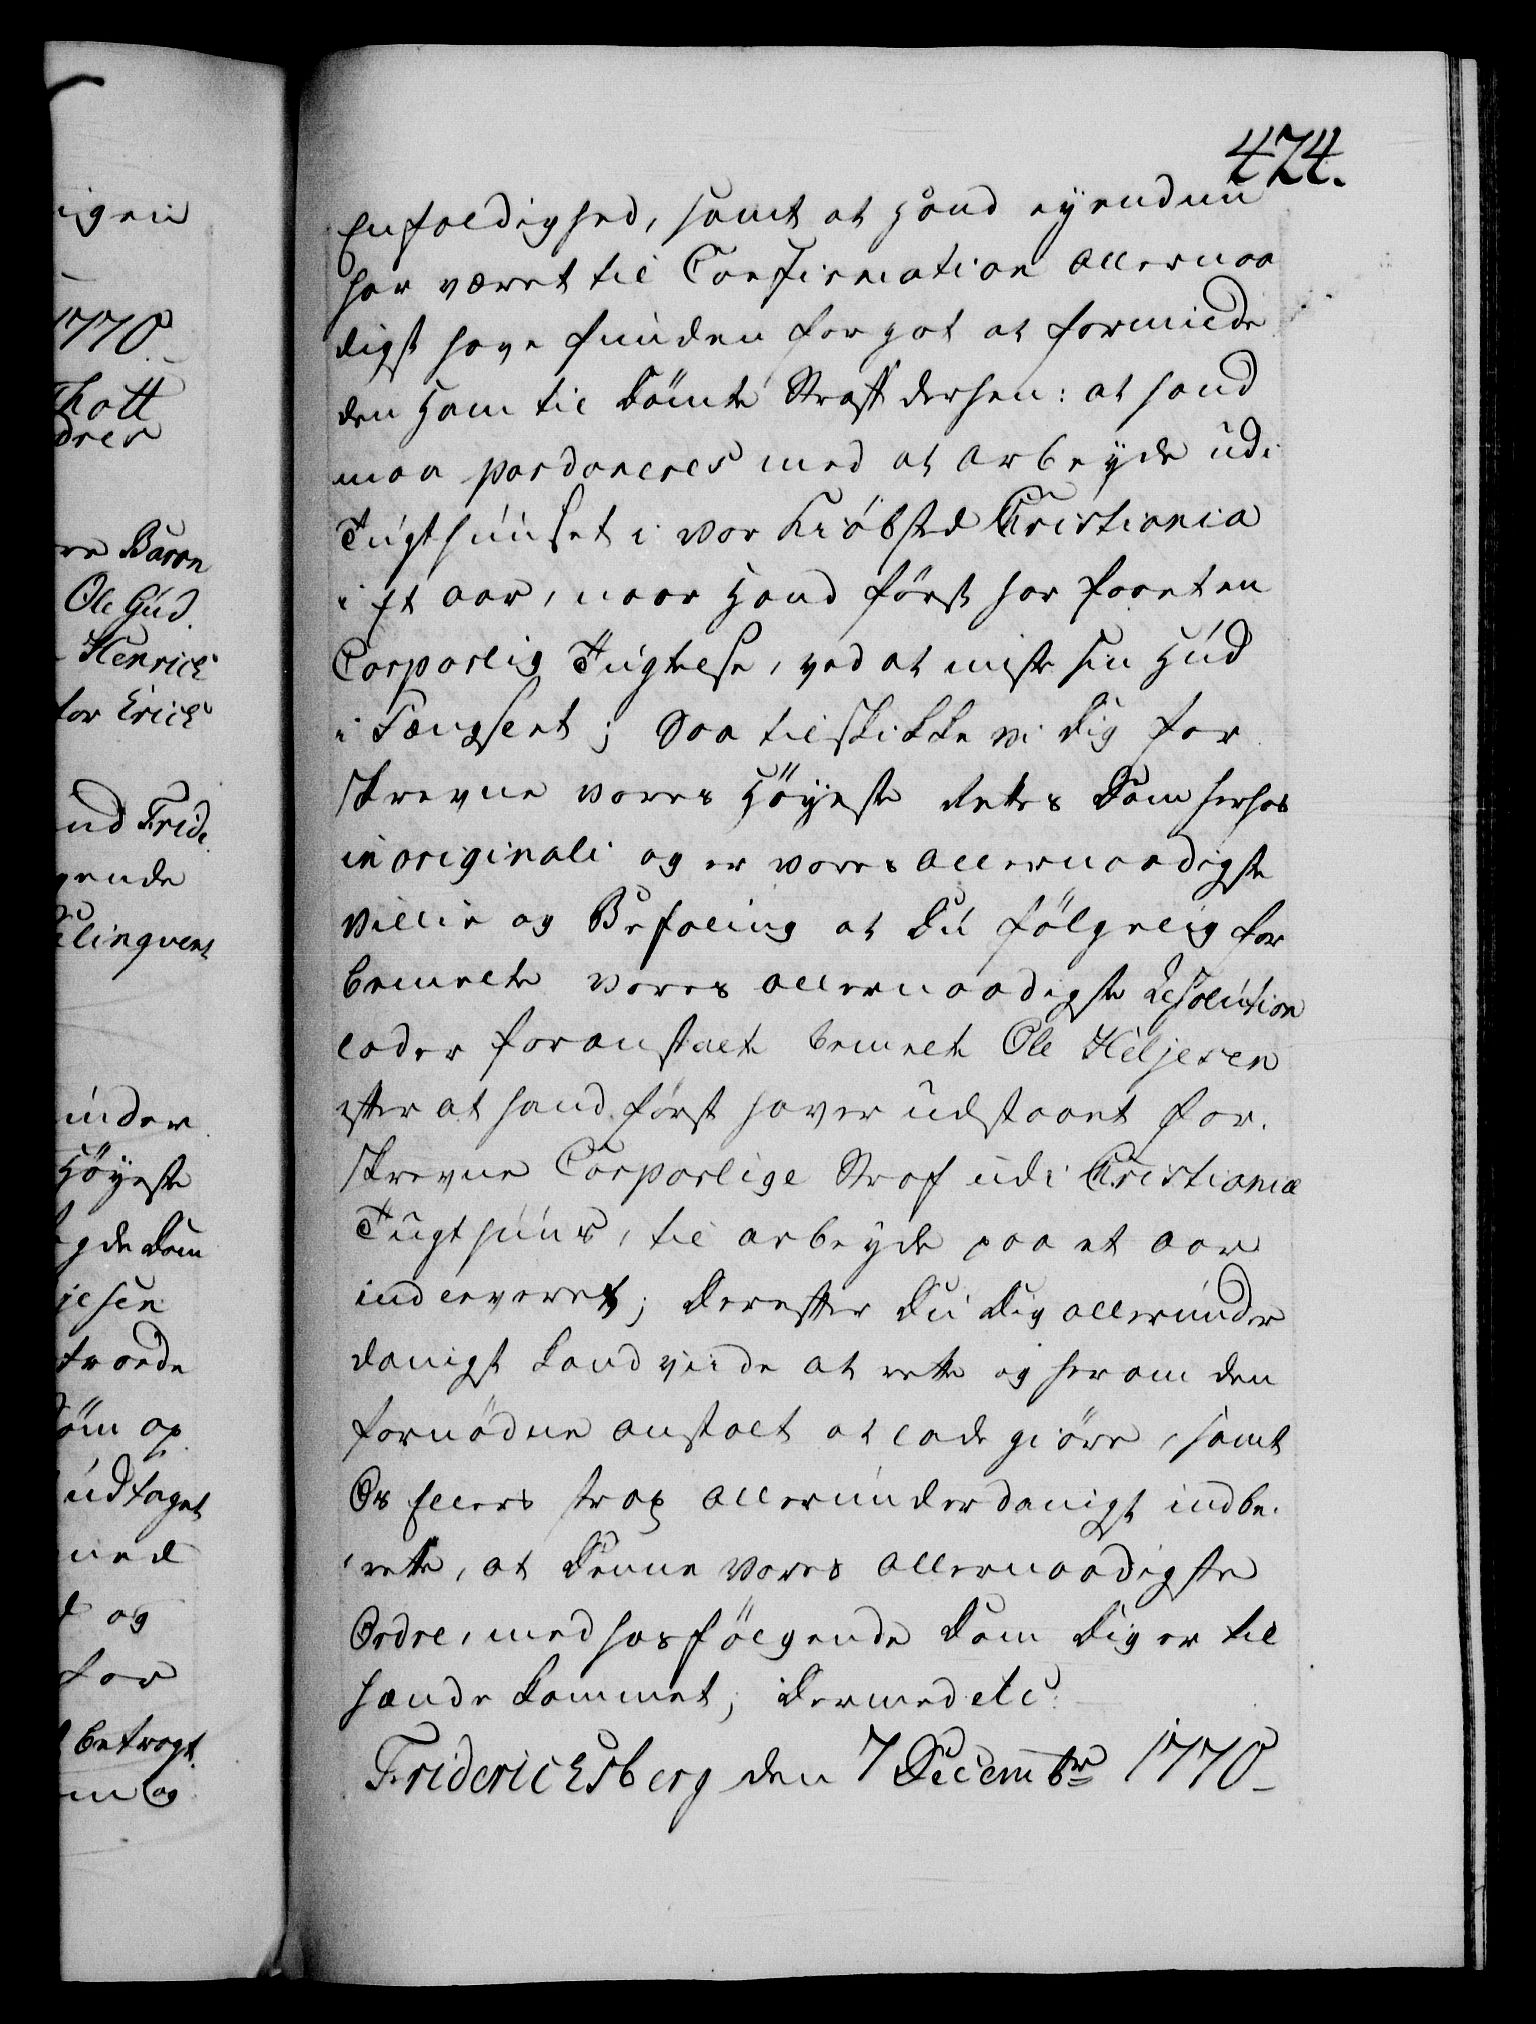 474.
Enfoldighed, samt at Hand eyendnu
har været til Confirmation allernaa
digst have funden for got at formilde
den Ham til Dömte Straff dersen: at hand
maa pardoneres med at arbeyde udi
Tugthuuset i vor Kiöbsted Christiania
i Et aar, naar Hand först har faaet en
Corporlig Tugtelse, ved at miste sin Hud
i Fængselet; Saa tilskikke vi Dig for
skrevne vores Höyeste Rettes Dom herhos
in originali og er vores allernaadigste
Villie og Befaling at Du fölgelig for
bemelte vores allernaadigste Resolution
lader foranstalte bemelte Ole Heljesen
efter at hand först haver udstaaet for-
skrevne Corporlige Straf udi Christiania
Tugthuus, til arbeyde paa et aar
indleveret; Derefter Du Dig allerunder
danigst kand viide at rette og herom den
fornödne anstalt at lade giöre, samt
Os Ellers strax allerunderdanigst indbe-
rette, at Denne vores allernaadigste
Ordre, med hosfölgende Dom Dig er til
hænde kommet; Dermed etc:
Fridericksberg den 7 Decembr 1770
igen
1770
Thott
Baron
Ole Gud
Henrich
for Erich
nd Frid
gende
linqvent
under
Höyeste
gde Dom
jesen
udtaget
og
for
betragt
og